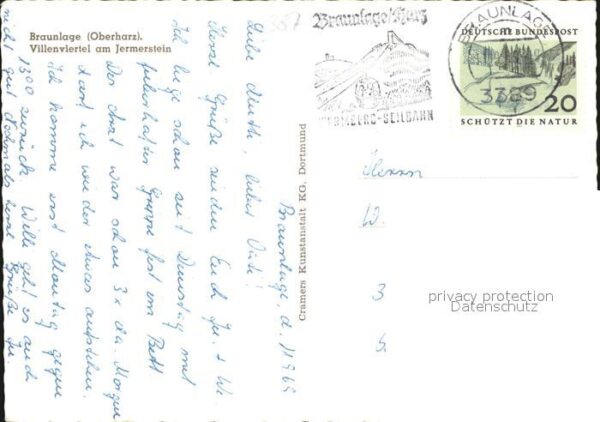 Braunlage (Oberharz).
Villenviertel am Jermerstein
Braunlage, d. 11.9.69
Liebe Mutti, lieber Vati!
Herzl. Grüße senden Euch Ju. + Wi.
Ich liege schon seit Dienstag mit
fieberhafter Grippe fest im Bett
Der Arzt war schon 3 x da. Morgen
darf ich wieder etwas aufstehen.
Ich komme erst Montag gegen
1300 zurück. Willi geht es auch
nicht gut Nochmals herzl. Grüße Ju.
Cramers Kunstanstalt KG, Dortmund
387
Braunlage/Harz
WURMBERG-SEILBAHN
BRAUNLAGE
3389
DEUTSCHE BUNDESPOST
20
SCHÜTZT DIE NATUR
Herrn
W.
3
5
privacy protection
Datenschutz